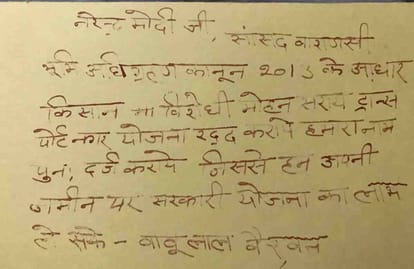 नरेन्द्र मोदी जी, सांसद वाराणसी
भूमि अधिग्रहण कानून 2013 के आधार
किसान विरोधी मोहन सराय ट्रान्स
पोर्ट नगर योजना रद्द कराये हमरा नाम
पुनः दर्ज कराये जिससे हम अपनी
जमीन पर सरकारी योजना का लाभ
ले सके - बाबू लाल